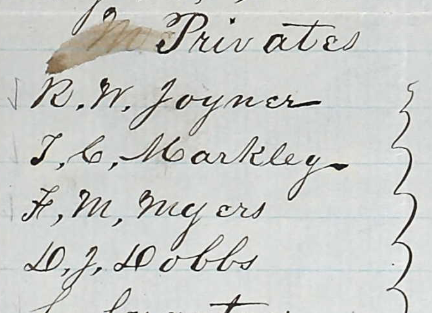 Privates
R. W. Joyner
T, C, Markley
F, M, Myers
D, J, Dobbs